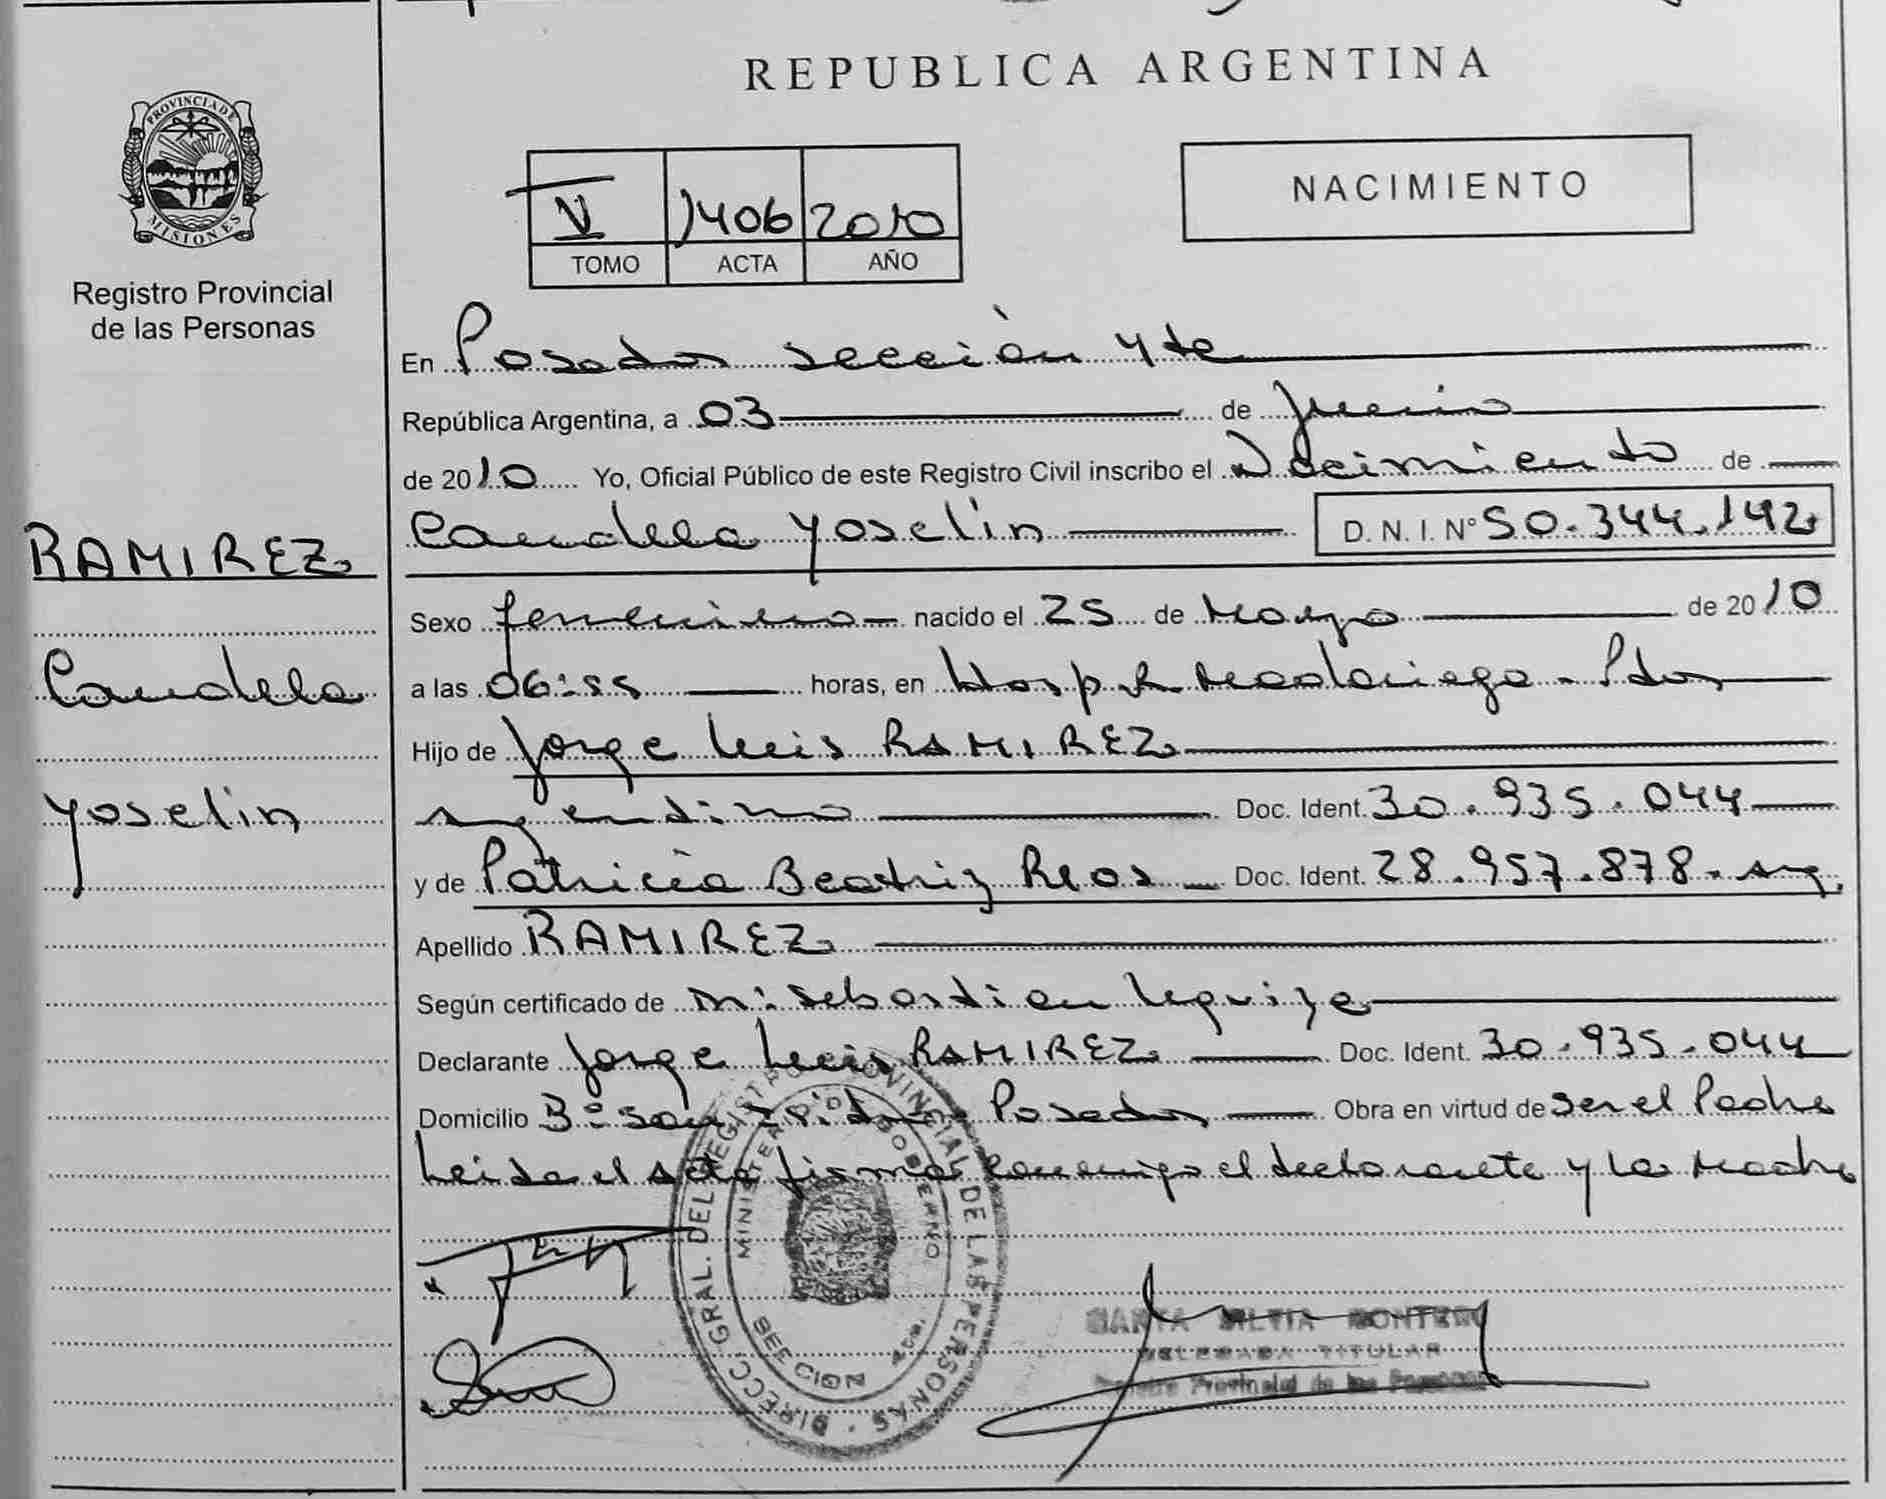 REPUBLICA ARGENTINA
PROVINCIA DE MISIONES
Registro Provincial
de las Personas
NACIMIENTO
V 1406 2010
TOMO ACTA AÑO
En Posadas sección 4ta
República Argentina, a 03 de Junio
de 2010 Yo, Oficial Público de este Registro Civil inscribo el Nacimiento de
Candela Yoselin D.N.I. Nº 50.344.142
RAMIREZ
Candela
Yoselin
Sexo femenino nacido el 25 de Mayo de 2010
a las 06:55 horas, en Hosp. R Madariaga - Pdas
Hijo de Jorge Luis RAMIREZ
argentino Doc. Ident. 30.935.044
y de Patricia Beatriz Rios Doc. Ident. 28.957.878 - arg.
Apellido RAMIREZ
Según certificado de Sebastian
Declarante Jorge Luis RAMIREZ Doc. Ident. 30.935.044
Domicilio Bº San Isidro Posadas Obra en virtud de ser el Padre
Leida el acta firma conmigo el declarante y la madre
DIRECC. GRAL. DEL REGISTRO PROVINCIAL DE LAS PERSONAS
MINISTERIO GOBIERNO
SECCION 4ta.
SILVIA MONTERO
DELEGADA TITULAR
Registro Provincial de las Personas